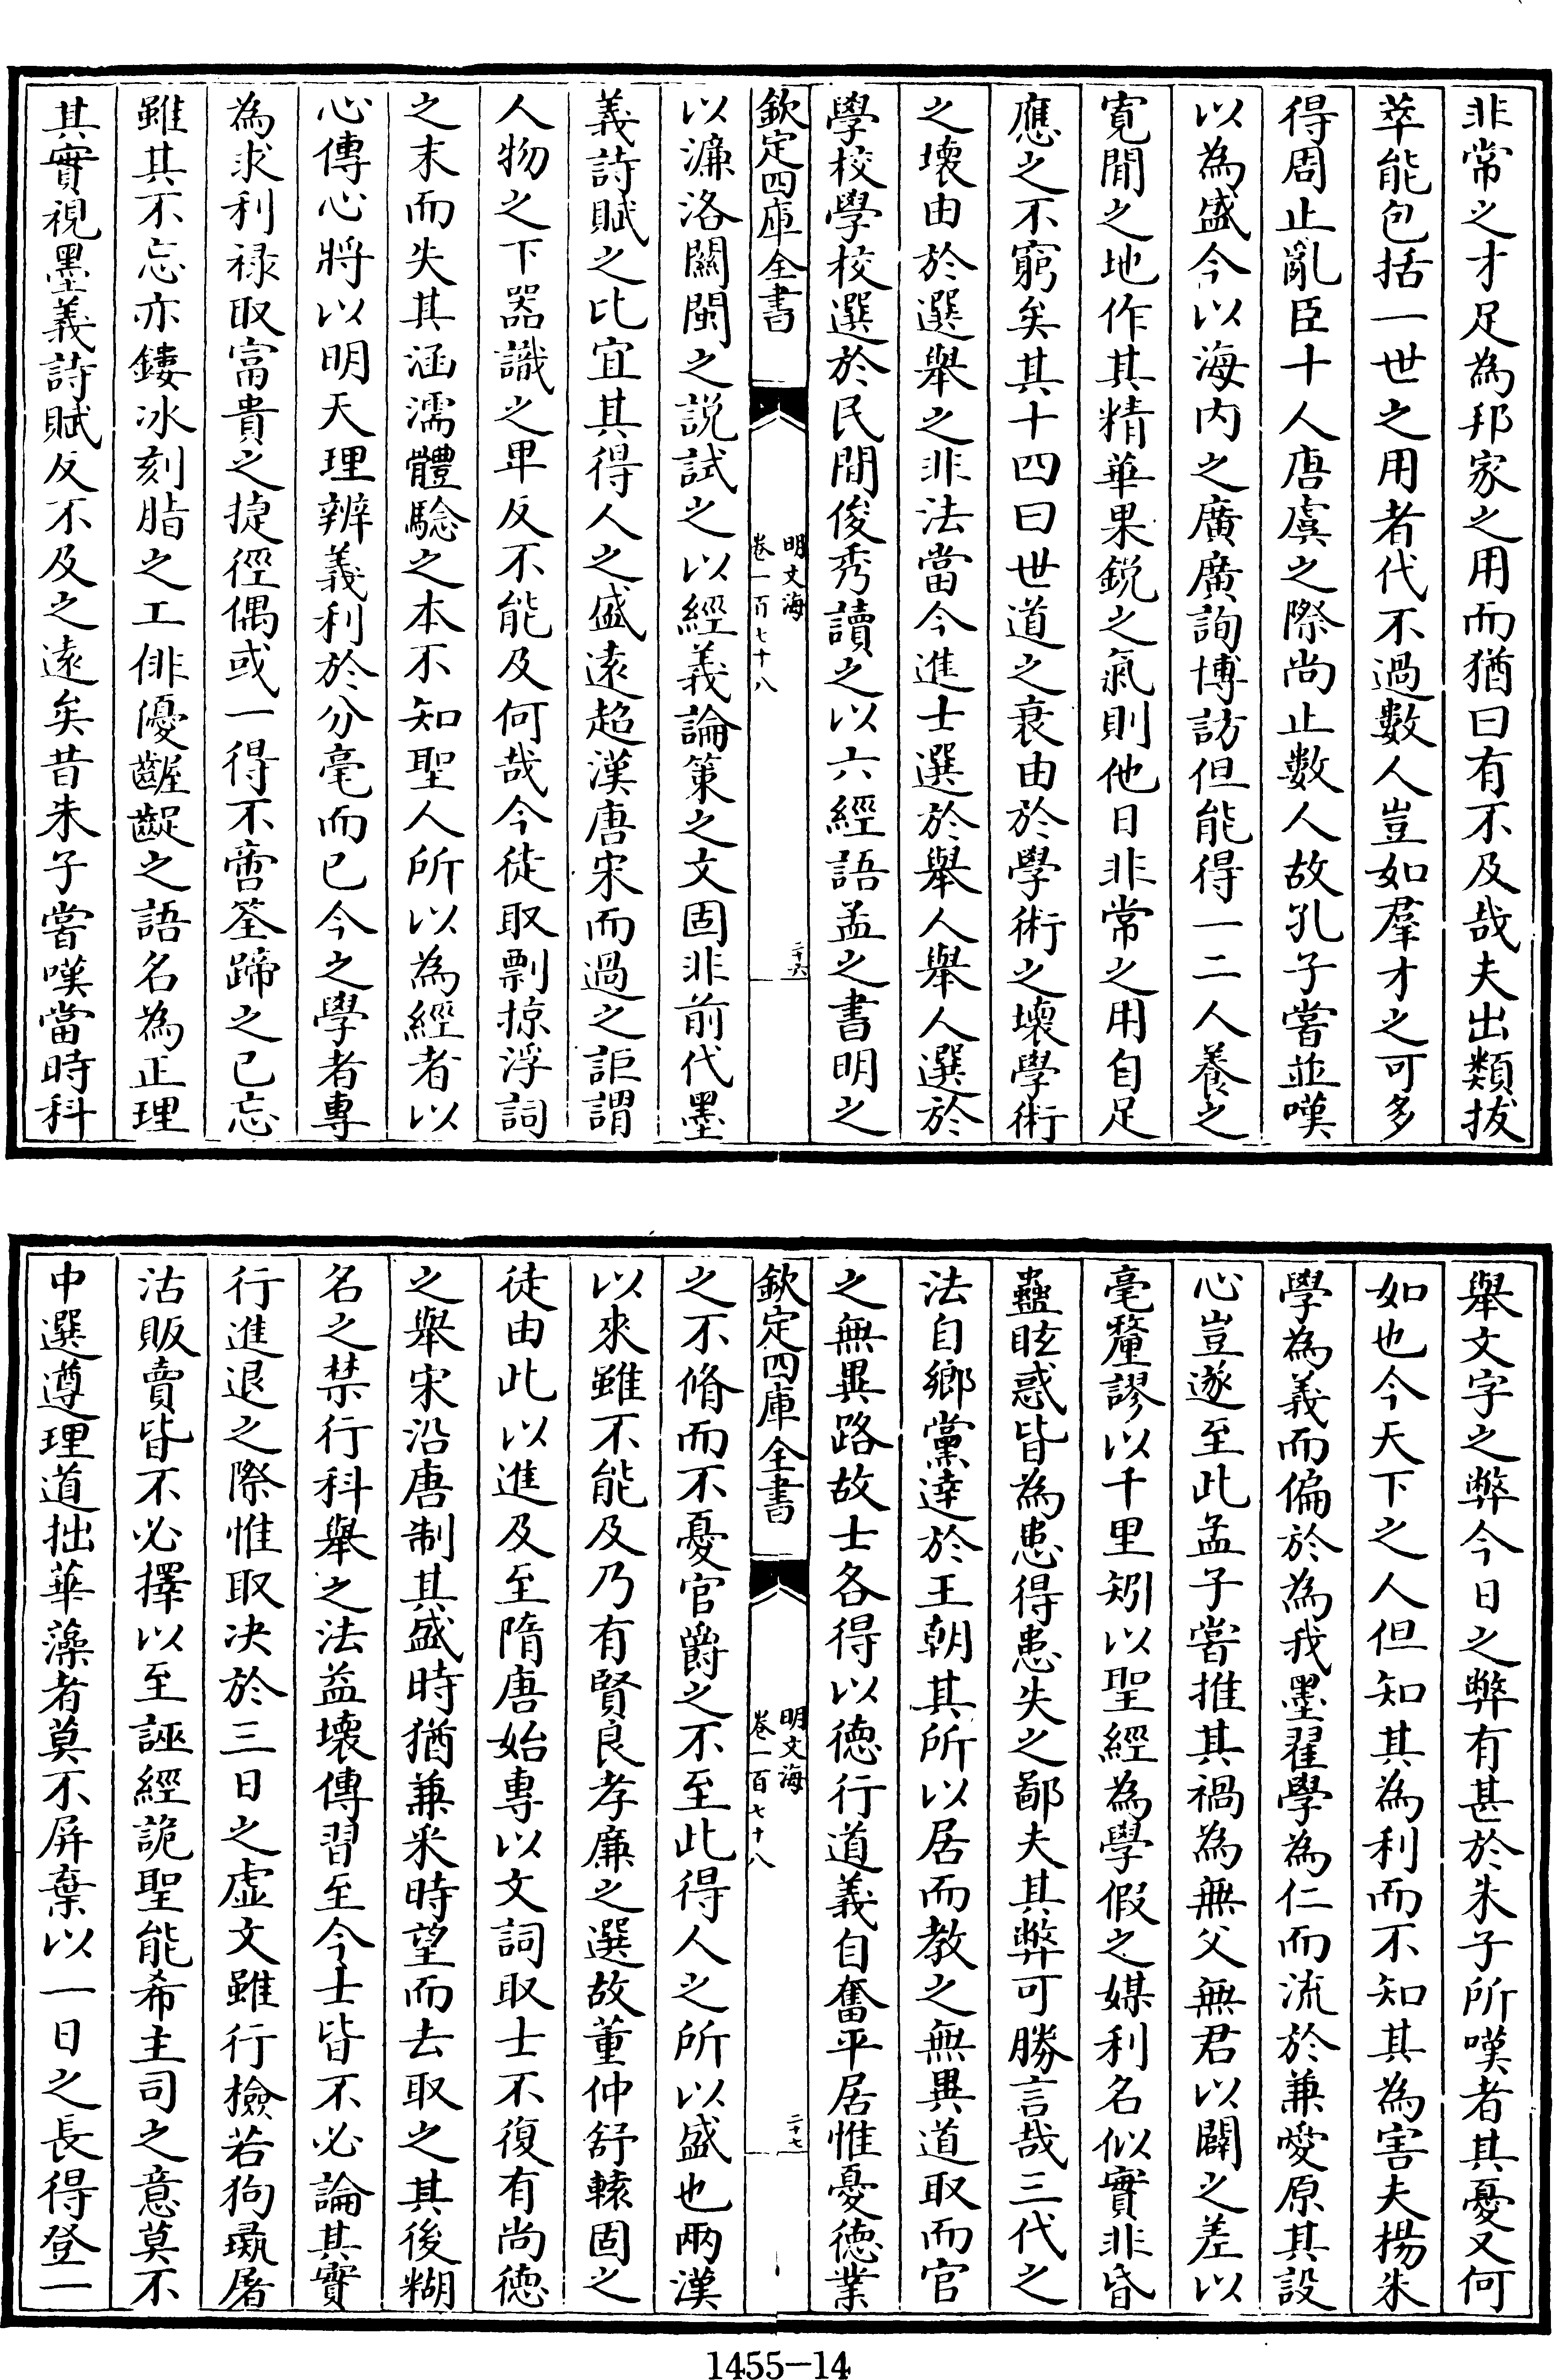 非常之才足為邦家之用而猶曰有不及哉夫出類拔
萃能包括一世之用者代不過數人豈如羣才之可多
得周止亂臣十人唐虞之際尚止數人故孔子嘗並嘆
以為盛今以海内之廣廣詢博訪但能得一二人養之
寛閒之地作其精華果鋭之氣則他日非常之用自足
應之不窮矣其十四曰世道之衰由於學術之壞學術
之壞由於選舉之非法當今進士選於舉人舉人選於
學校學校選於民間俊秀讀之以六經語孟之書明之
欽定四庫全書
明文海
卷一百七十八
二十六
以濂洛關閩之説試之以經義論策之文固非前代墨
義詩賦之比宜其得人之盛遠超漢唐宋而過之詎謂
人物之下器識之卑反不能及何哉今徒取剽掠浮詞
之末而失其涵濡體騐之本不知聖人所以為經者以
心傳心將以明天理辨義利於分毫而已今之學者專
為求利禄取富貴之捷徑偶或一得不啻筌蹄之已忘
雖其不忘亦鏤冰刻脂之工俳優齷齪之語名為正理
其實視墨義詩賦反不及之遠矣昔朱子嘗嘆當時科
舉文字之弊今日之弊有甚於朱子所嘆者其憂又何
如也今天下之人但知其為利而不知其為害夫楊朱
學為義而偏於為我墨翟學為仁而流於兼愛原其設
心豈遂至此孟子嘗推其禍為無父無君以闢之差以
毫釐謬以千里矧以聖經為學假之媒利名似實非昏
蠱眩惑皆為患得患失之鄙夫其弊可勝言哉三代之
法自鄉黨達於王朝其所以居而教之無異道取而官
之無異路故士各得以徳行道義自奮平居惟憂徳業
欽定四庫全書
明文海
卷一百七十八
二十七
之不脩而不憂官爵之不至此得人之所以盛也兩漢
以來雖不能及乃有賢良孝廉之選故董仲舒轅固之
徒由此以進及至隋唐始專以文詞取士不復有尚徳
之舉宋沿唐制其盛時猶兼采時望而去取之其後糊
名之禁行科舉之法益壞傳習至今士皆不必論其實
行進退之際惟取决於三日之虚文雖行檢若狗彘屠
沽販賣皆不必擇以至誣經詭聖能希主司之意莫不
中選遵理道拙華藻者莫不屏棄以一日之長得登一
1455—14